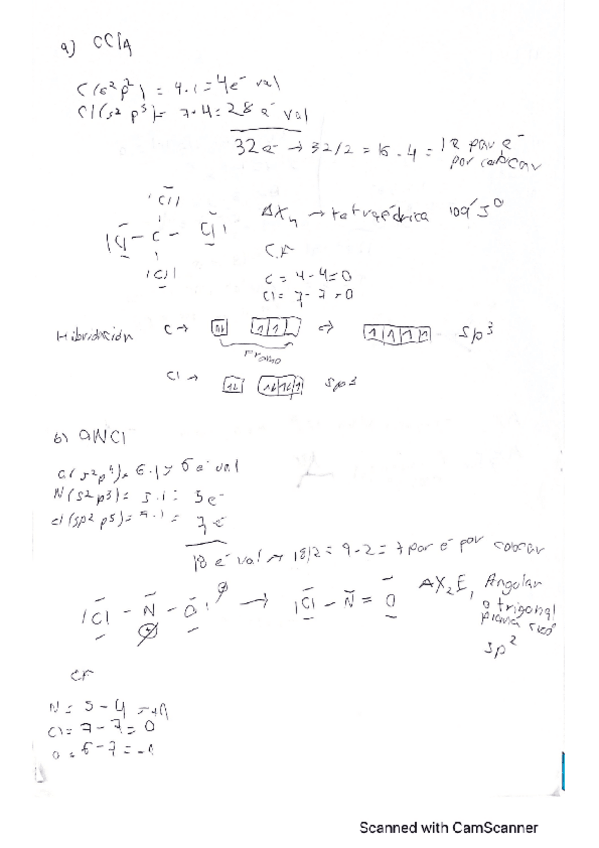 a) CCl4
C(s²p²) = 4·1 = 4e⁻ val
Cl(s² p⁵) = 7·4 = 28 e⁻ val
32e⁻ → 32/2 = 16 - 4 = 12 par e⁻
por colocar
|Cl|
|Cl - C - Cl|
|Cl|
AX4 → tetraédrica 109'5°
C.F
C = 4-4=0
Cl = 7-7=0
Hibridación C → ⇒ sp³
promo
Cl → sp3
b) ONCl
O(s²p⁴) = 6·1 = 6 e⁻ val
N(s²p3) = 5·1 = 5e⁻
cl(sp2 p5) = 7·1 = 7 e⁻
18 e⁻ val → 18/2 = 9-2 = 7 par e⁻ por colocar
|Cl - N - O| → |Cl - N = O
AX2E1 Angular
o trigonal
plana
sp²
CF
N = 5 - 4 = +1
Cl = 7 - 7 = 0
O = 6 - 7 = -1
Scanned with CamScanner